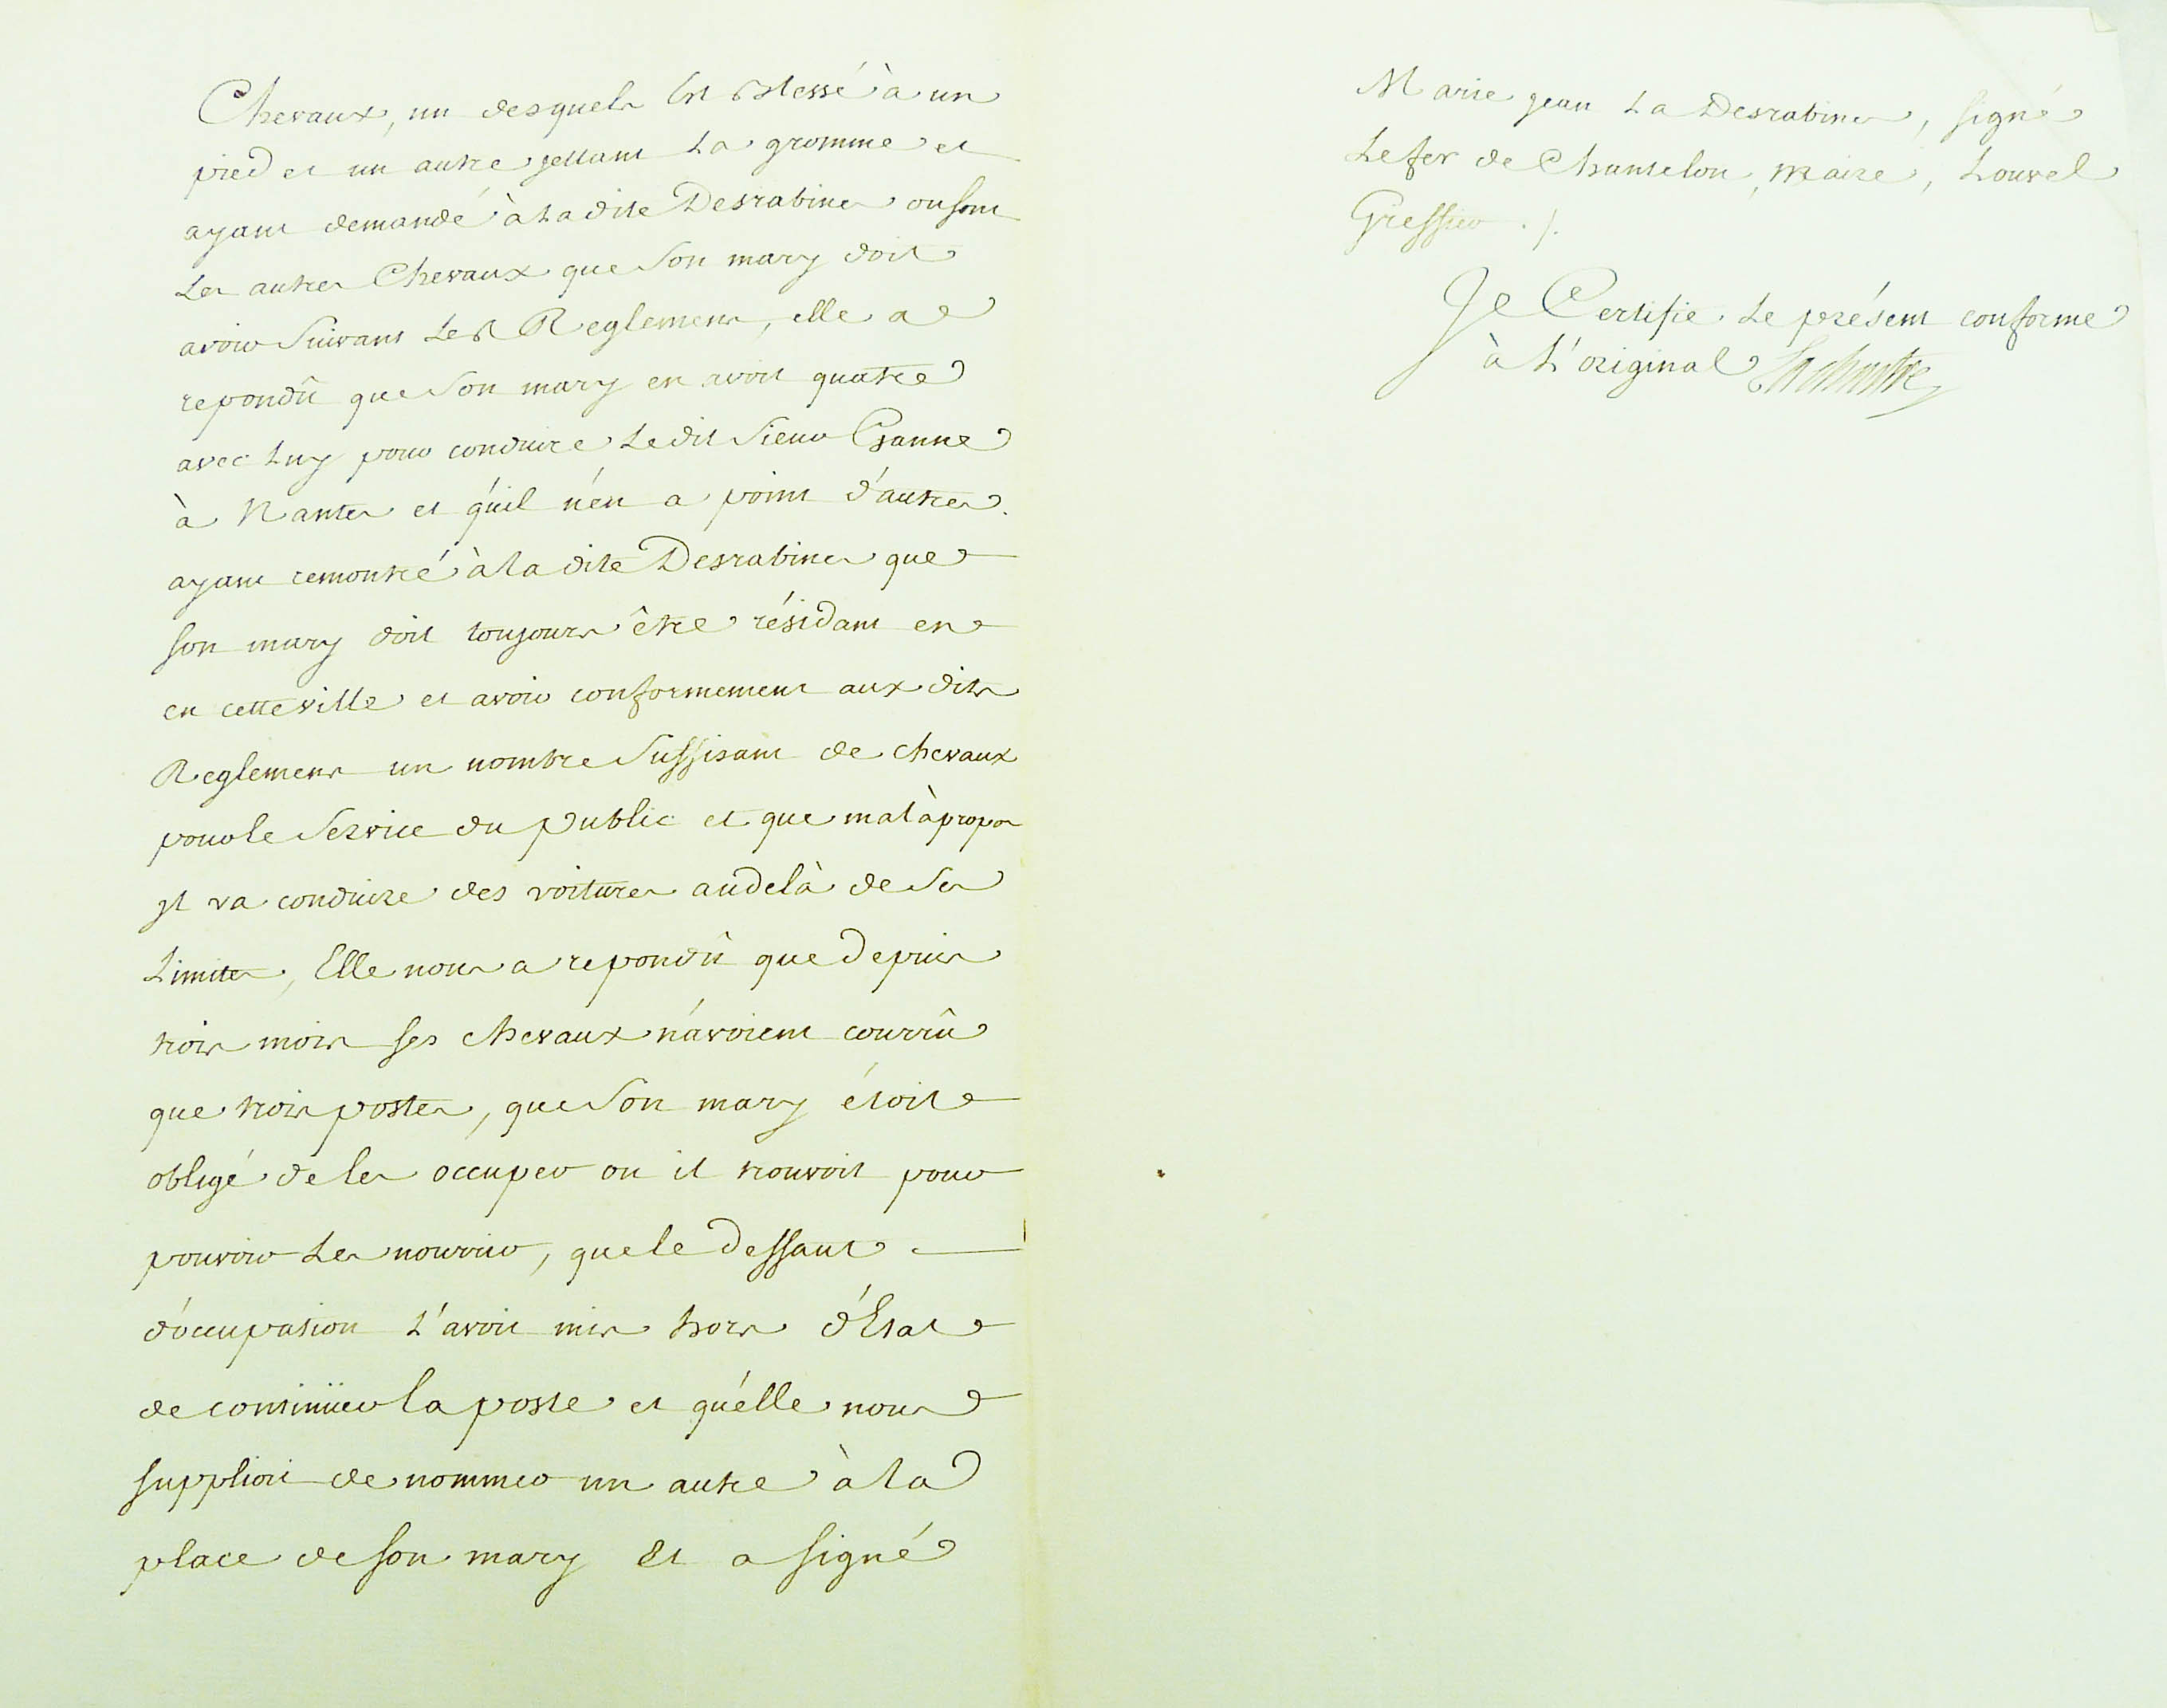 Chevaux, un desquels Est Blessé à un
pied et un autre jettant La gromme et
ayant demandé à La dite Desrabines ou sont
Les autres Chevaux que Son mary doit
avoir Suivant Les Reglemens, elle a
repondû que Son mary en avoit quatre
avec Luy pour conduire Le dit Sieur Ganne
à Nantes et qu'il n'en a point d'autres.
ayant remontré à la dite Desrabines que
son mary doit toujours être résidant en
en cette ville et avoir conformement aux dits
Reglemens un nombre Suffisant de chevaux
pour le Service du Public et que mal à propos
jl va conduire des voitures audelà de Ses
Limites, Elle nous a repondû que depuis
trois mois ses chevaux n'avoient courrû
que trois postes, que Son mary étoit
obligé de les occuper ou il trouvoit pour
pouvoir Les nourrir, que le deffaut
d'occupation L'avoit mis hors d'Etat
de continüer la poste et qu'elle nous
supplioit de nommer un autre à la
place de son mary Et a signé
Marie jean La Desrabines, signé
Lefer de Chantelou, Maire, Louvel
Greffier ./.
Je Certifie Le présent conforme
à L'original